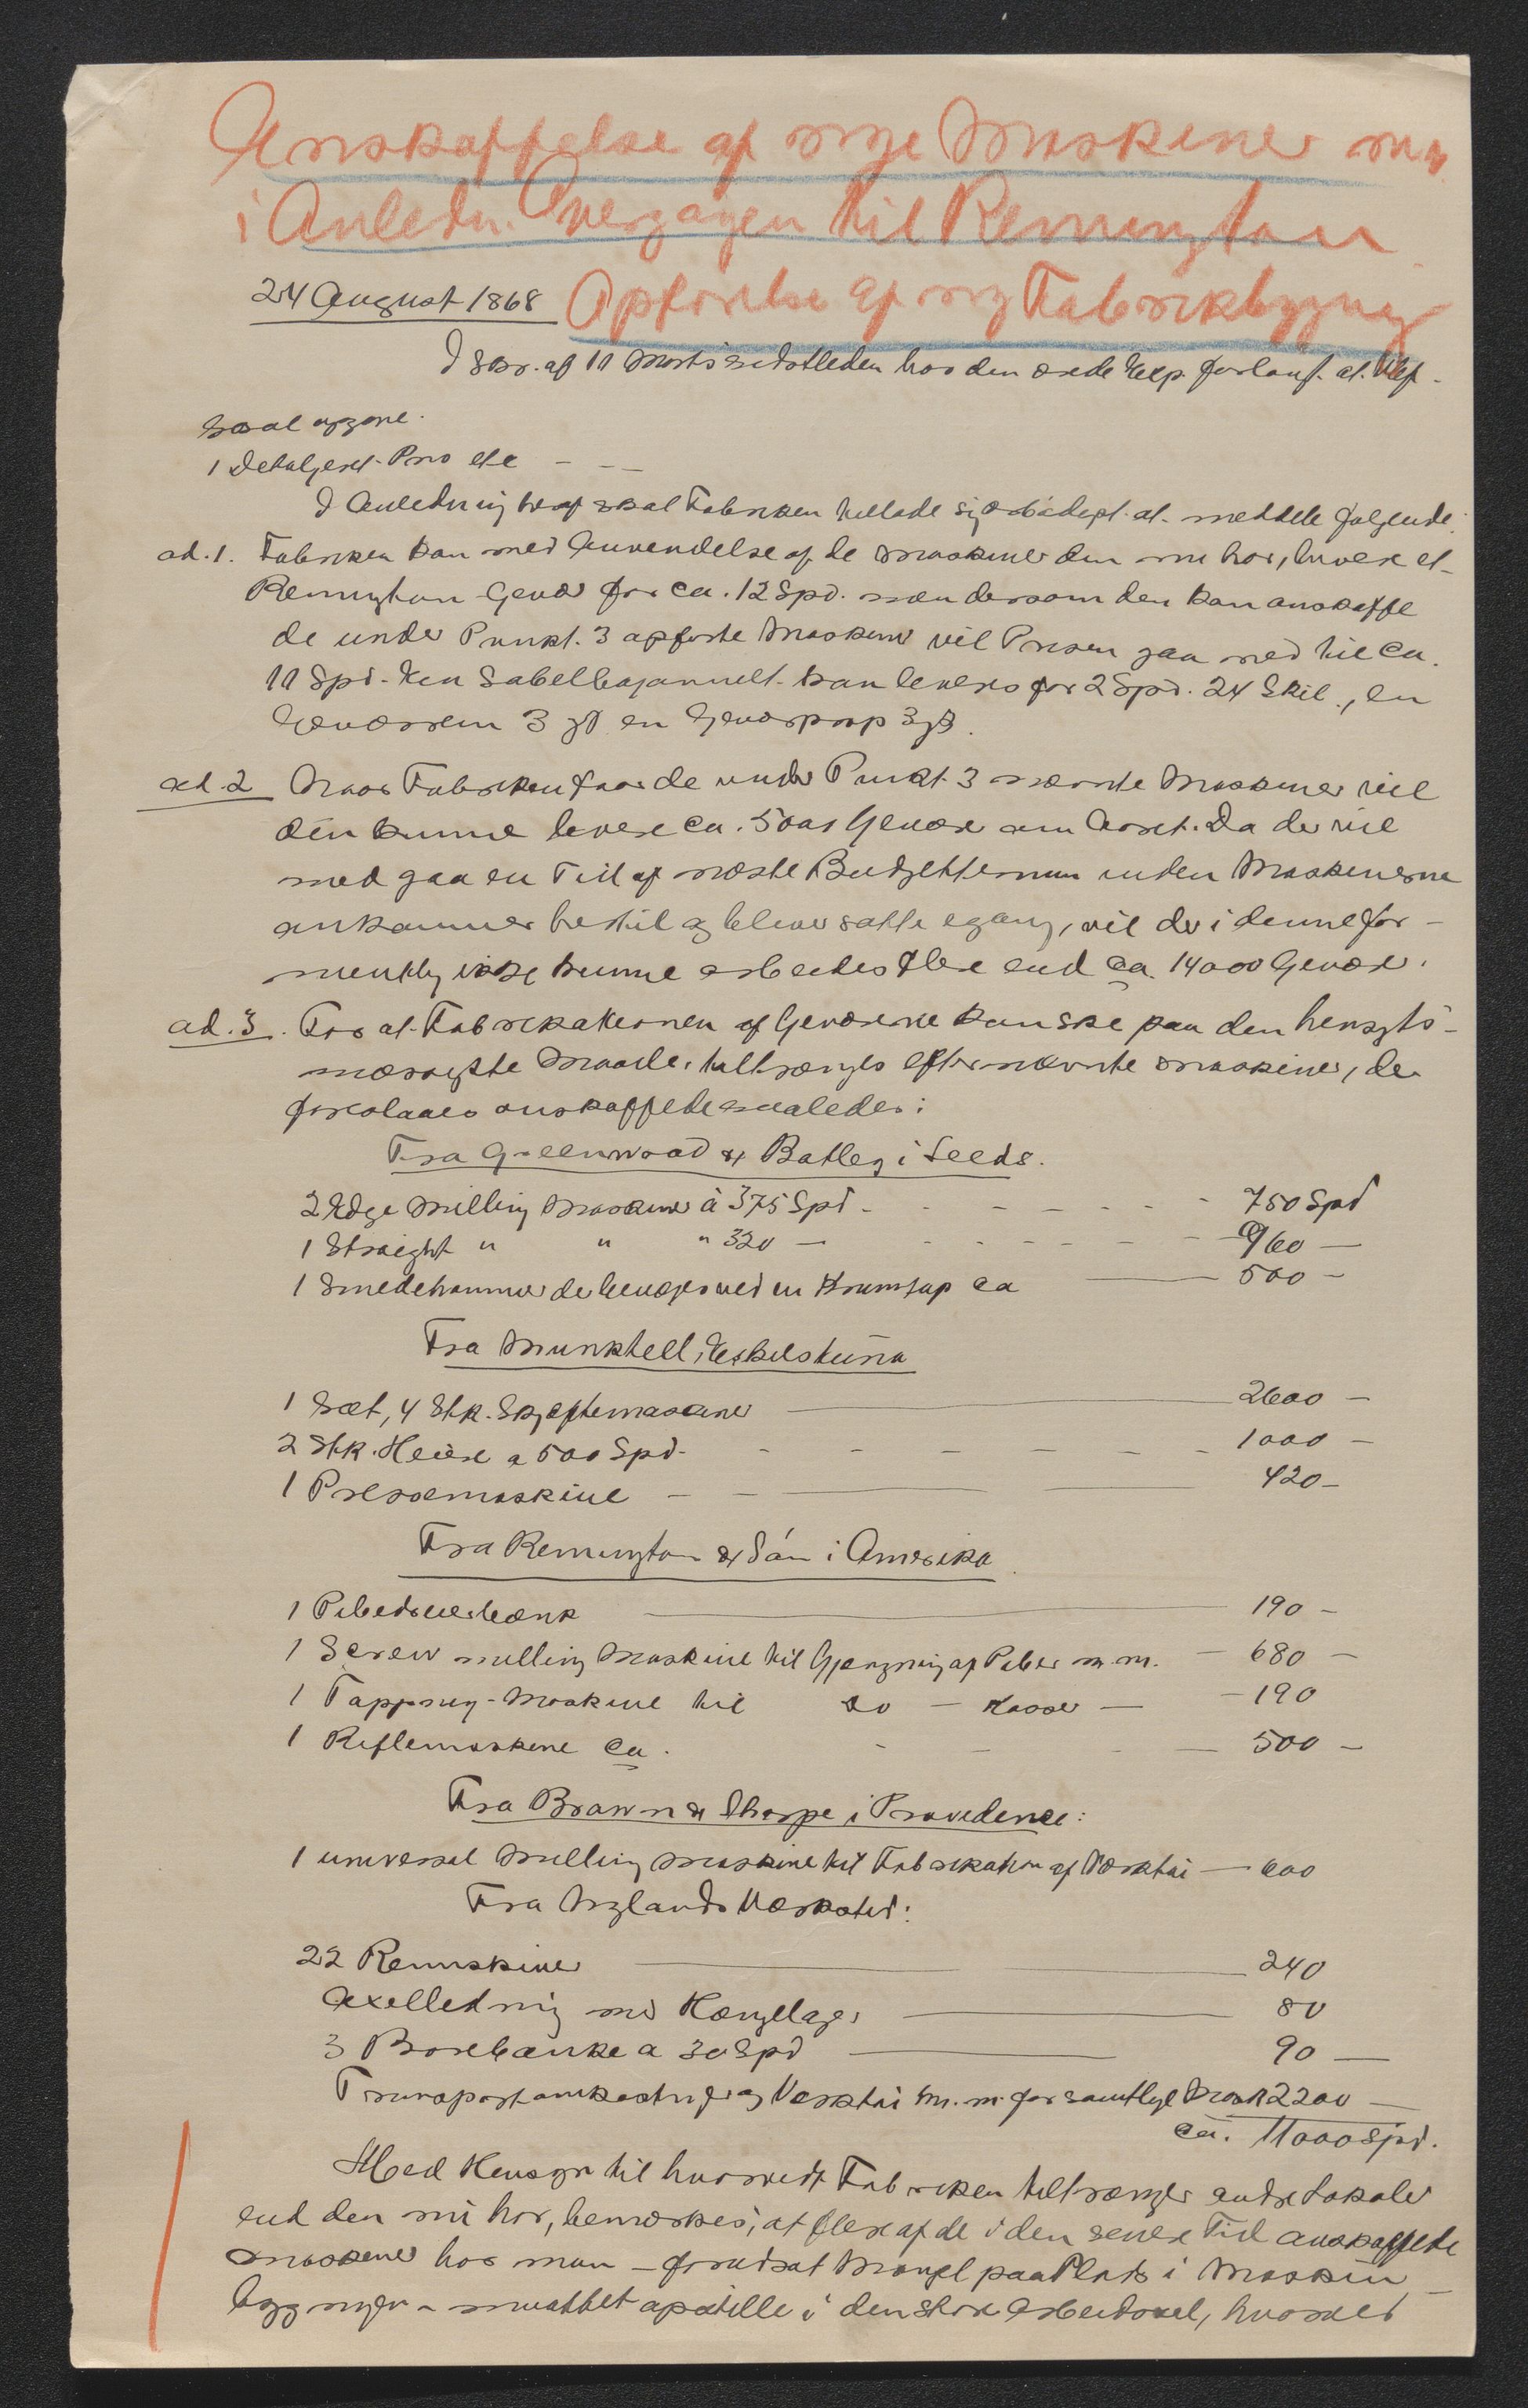 Anskaffelse af nye Maskiner m.m.
i Anledn. Overgangen til Remington
24 August 1868 Opførelse af ny Fabrikbygning
I Skr. af 11 Marts sidstleden har den ærede Exp. forlangt at
skal opgive.
1 Detaljeret Pris etc - - -
I Anledning heraf skal Fabriken tillade sig ærbødigst at meddele følgende:
ad. 1. Fabriken kan med Anvendelse af de Maskiner den nu har, levere et
Remington Gevær for ca. 12 Spd. men dersom den kan anskaffe
de under Punkt. 3 opførte Maskiner vil Prisen gaa ned til ca.
11 Spd. En Sabelbajonnett kan leveres for 2 Spd. 24 Skil., en
Geværrem 3 en Geværprop 3 ß.
ad. 2 Naar Fabriken faar de under Punkt 3 nævnte Maskiner vil
den kunne levere ca. 5000 Gevær om Aaret. Da der vil
med gaa en Tid af næste Budgettermin inden Maskinerne
ankommer hertil og bliver satte igang, vil der i denne for-
mentlig ikke kunne arbeides flere end ca. 14000 Gevær.
ad. 3. For at Fabrikationen af Geværerne kan ske paa den hensigts-
mæssigste Maade, tiltrænges efternævnte Maskiner, der
foreslaaes anskaffede saaledes:
Fra Greenwood & Batley i Leeds.
2 Edge Milling Maskiner à 375 Spd - - - - - - 750 Spd
1 Straight " " " 320 — - - - - - - 960 —
1 Smedehammer der bevæges ved en Krumtap ca — 500 —
Fra Munktell, Eskilstuna
1 Sæt, 4 Stk. Skjæftemaskiner — 2600 —
2 Stk. Heise a 500 Spd - - - - - - 1000 —
1 Pressemaskine - - — 420 —
Fra Remington & Søn i Amerika.
1 Pibedreiebænk — 190 —
1 Screw milling Maskine til Gjængning af Piber m.m. — 680 —
1 Tapping-Maskine til do — Kasser — — 190
1 Riflemaskine ca. - - - — 500 —
Fra Brown & Sharpe i Providence:
1 universal Milling Maskine til Fabrikation af Værktøi — 600
Fra Nylands Værksted:
22 Remskiver — 240
Axelledning med Hængelager — 80
3 Borebænke a 30 Spd — 90 —
Transportomkostninger og Værktøi m.m. for samtlige Mask 2200 —
ca. 11000 Spd.
Med Hensyn til hvorvidt Fabriken tiltrænger andre Lokaler
end den nu har, bemærkes, at flere af de i den senere Tid anskaffede
Maskiner har man - forudsat Mangel paa Plads i Maskin-
bygningen - maattet opstille i den store Arbeidssal, hvorved